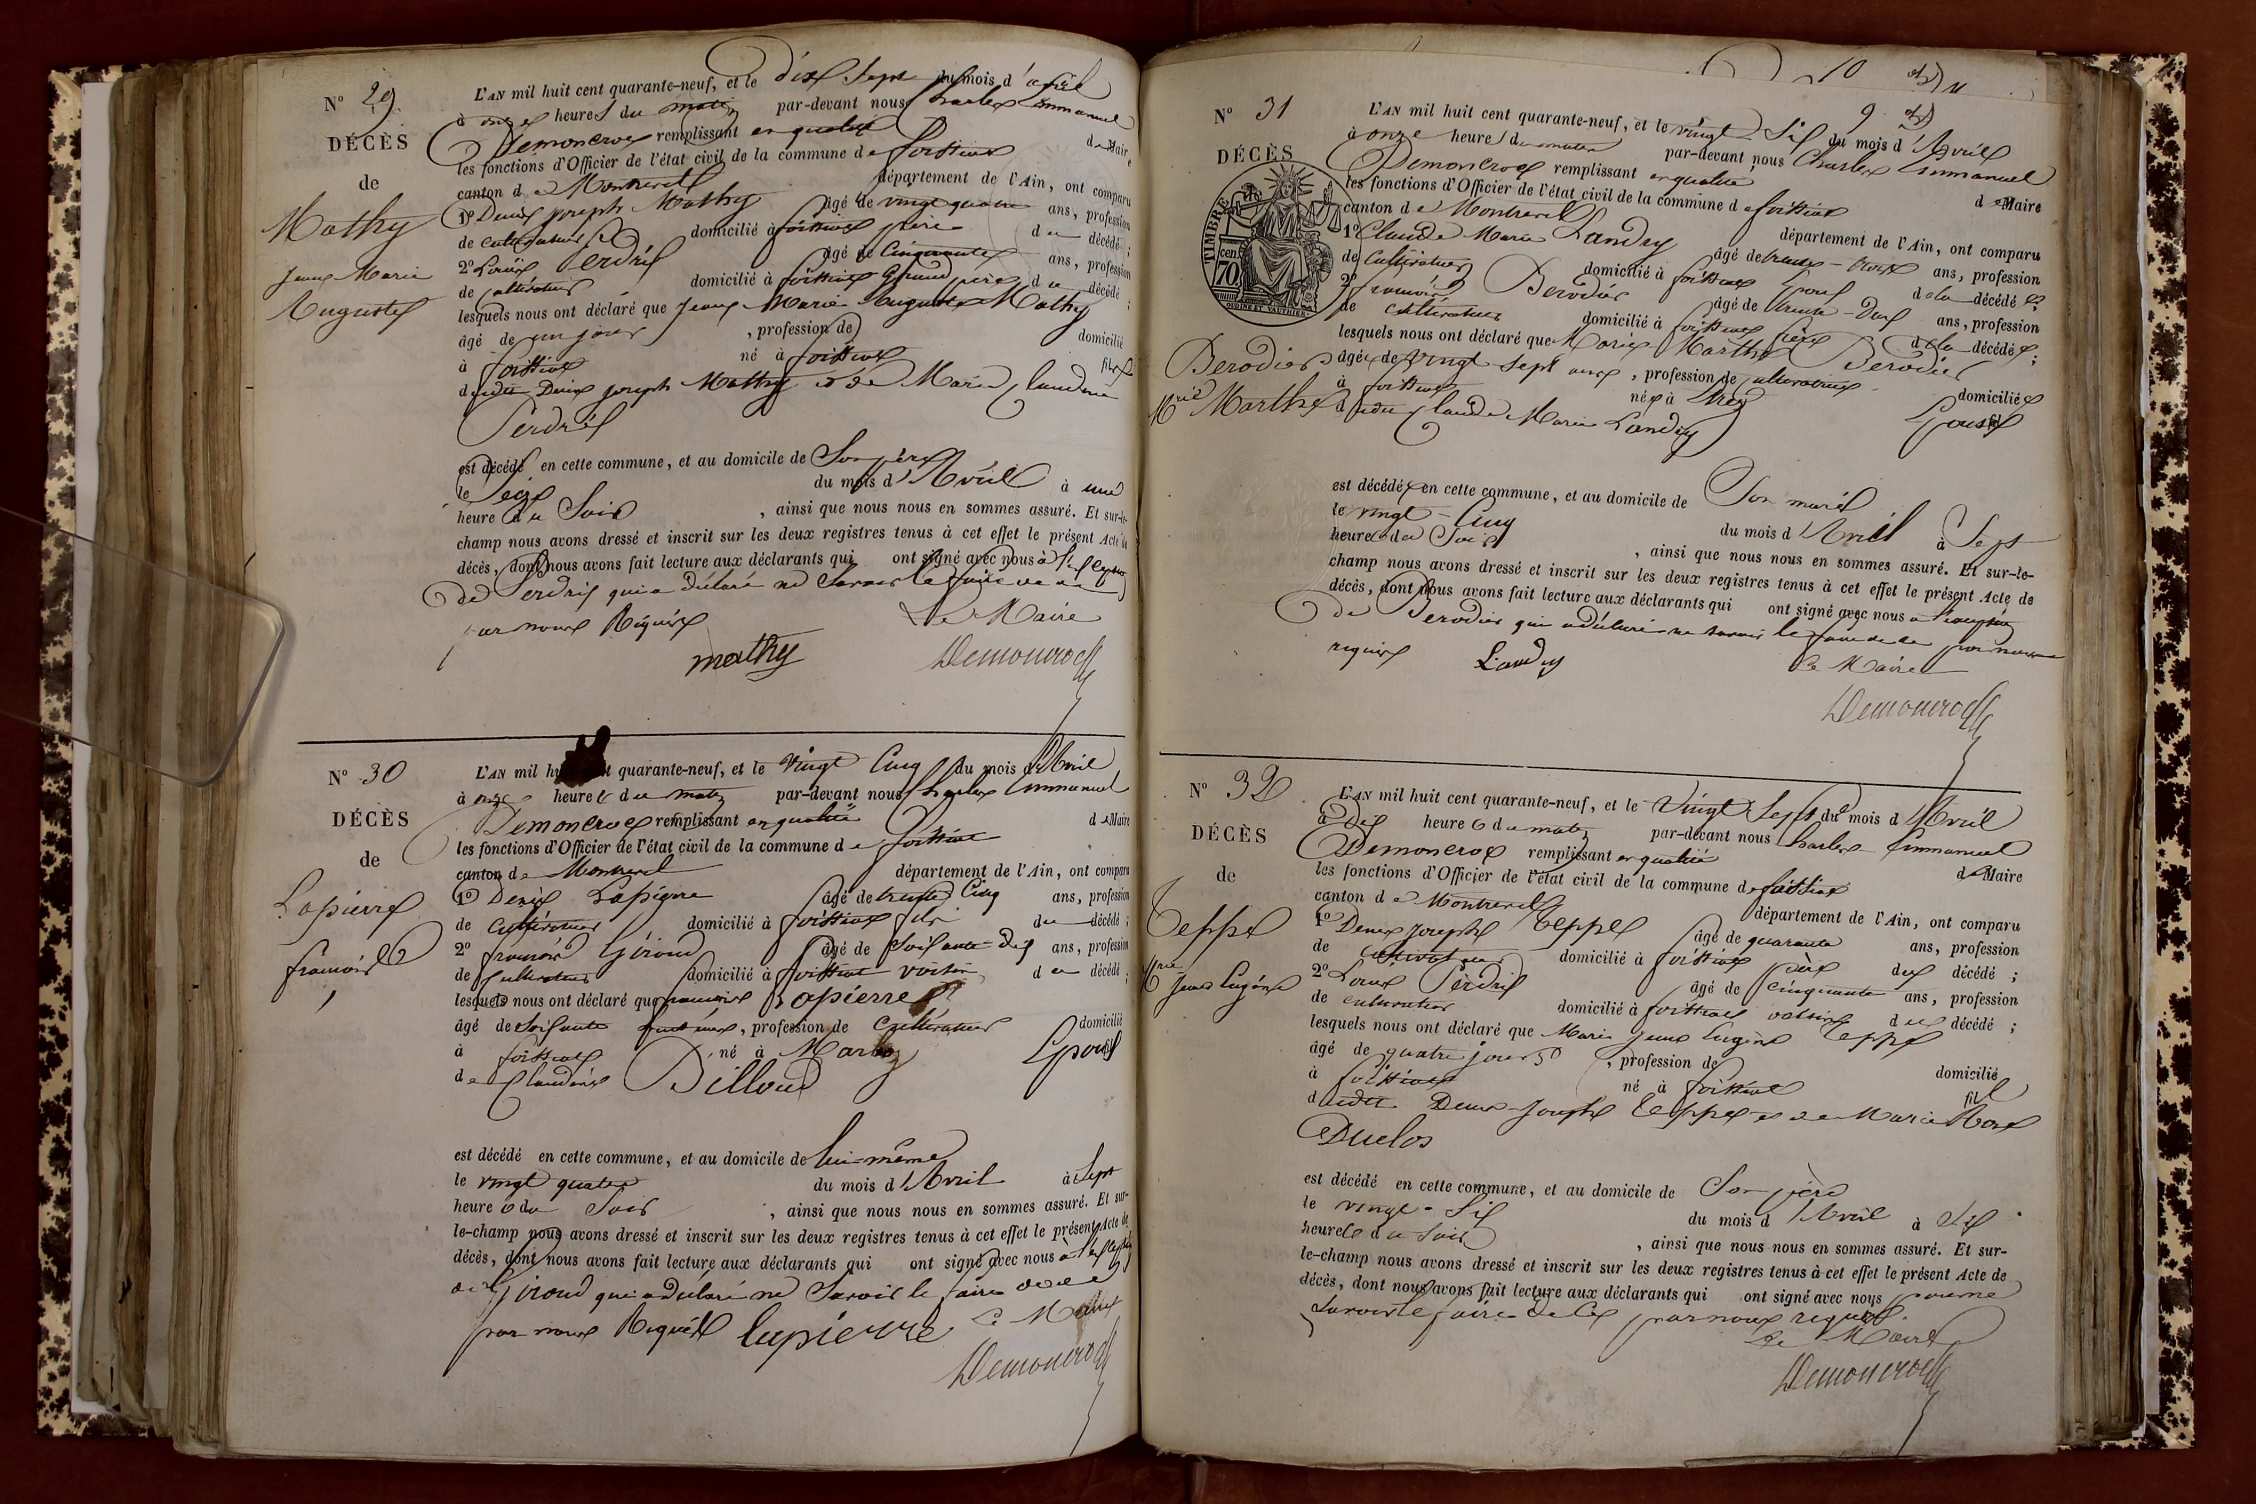 N° 29
DÉCÈS
de
Mathy
Jean Marie
Auguste
L'AN mil huit cent quarante-neuf, et le dix Sept du mois d'avril
à onze heures du matin par-devant nous Charles Emmanuel
Demoncroix remplissant en qualité de Maire
les fonctions d'Officier de l'état civil de la commune de foissiat
canton de Montrevel département de l'Ain, ont comparu
1° Denis joseph Mathy âgé de vingt quatre ans, profession
de cultivateur domicilié à foissiat père du décédé ;
2° Louis Perdrix âgé de Cinquante ans, profession
de cultivateur domicilié à foissiat Grand père du décédé ;
lesquels nous ont déclaré que Jean Marie Auguste Mathy
âgé de un jour , profession de domicilié
à foissiat né à foissiat fils
dudit Denis joseph Mathy et de Marie Claudine
Perdrix
est décédé en cette commune, et au domicile de Son père
le Seize du mois d'Avril à une
heure du Soir , ainsi que nous nous en sommes assuré. Et sur-le-
champ nous avons dressé et inscrit sur les deux registres tenus à cet effet le présent Acte de
décès, dont nous avons fait lecture aux déclarants qui ont signé avec nous à l'exception
de Perdrix qui a déclaré ne Savoir le faire de ce
par nous Requis
Le Maire
mathy Demoncroix
N° 30
DÉCÈS
de
Lapierre
françois
L'AN mil huit cent quarante-neuf, et le vingt Cinq du mois d'Avril
à onze heures du matin par-devant nous Charles Emmanuel
Demoncroix remplissant en qualité de Maire
les fonctions d'Officier de l'état civil de la commune de foissiat
canton de Montrevel département de l'Ain, ont comparu
1° Denis Lapierre âgé de trente Cinq ans, profession
de cultivateur domicilié à foissiat fils du décédé ;
2° françois Giroud âgé de Soixante-Dix ans, profession
de Cultivateur domicilié à foissiat voisin du décédé ;
lesquels nous ont déclaré que françois Lapierre
âgé de Soixante huit ans, profession de Cultivateur domicilié
à foissiat né à Marboz Epoux
de Claudine Billoud
est décédé en cette commune, et au domicile de lui-même
le vingt quatre du mois d'Avril à Sept
heures du Soir , ainsi que nous nous en sommes assuré. Et sur-
le-champ nous avons dressé et inscrit sur les deux registres tenus à cet effet le présent Acte de
décès, dont nous avons fait lecture aux déclarants qui ont signé avec nous à l'exception
de Giroud qui a déclaré ne Savoir le faire de ce
par nous Requis lapierre Le Maire
Demoncroix
10
9
N° 31
DÉCÈS
TIMBRE
70 cen.
OUDINÉ ET VAUTHIER
Berodier
Marie Marthe
L'AN mil huit cent quarante-neuf, et le vingt Six du mois d'Avril
à onze heures du matin par-devant nous Charles Emmanuel
Demoncroix remplissant en qualité de Maire
les fonctions d'Officier de l'état civil de la commune de foissiat
canton de Montrevel département de l'Ain, ont comparu
1° Claude Marie Landry âgé de trente-trois ans, profession
de Cultivateur domicilié à foissiat Epoux de la décédée
2° françois Berodier âgé de trente-Deux ans, profession
de cultivateur domicilié à foissiat frère de la décédée ;
lesquels nous ont déclaré que Marie Marthe Berodier
âgée de vingt sept ans , profession de cultivatrice domiciliée
à foissiat née à Epouse
dudit Claude Marie Landry
est décédée en cette commune, et au domicile de Son mari
le vingt-Cinq du mois d'Avril à Sept
heures du Soir , ainsi que nous nous en sommes assuré. Et sur-le-
champ nous avons dressé et inscrit sur les deux registres tenus à cet effet le présent Acte de
décès, dont nous avons fait lecture aux déclarants qui ont signé avec nous à l'exception
de Berodier qui a déclaré ne savoir le faire de ce par nous
requis Landry Le Maire
Demoncroix
N° 32
DÉCÈS
de
Teppe
Marie
Jean Eugène
L'AN mil huit cent quarante-neuf, et le vingt Sept du mois d'Avril
à Dix heures du matin par-devant nous Charles Emmanuel
Demoncroix remplissant en qualité de Maire
les fonctions d'Officier de l'état civil de la commune de foissiat
canton de Montrevel département de l'Ain, ont comparu
1° Denis Joseph Teppe âgé de quarante ans, profession
de cultivateur domicilié à foissiat père du décédé ;
2° Louis Perdrix âgé de Cinquante ans, profession
de cultivateur domicilié à foissiat voisin du décédé ;
lesquels nous ont déclaré que Marie Jean Eugène Teppe
âgé de quatre jours , profession de domicilié
à foissiat né à foissiat fils
dudit Denis-Joseph Teppe et de Marie Rose
Duclos
est décédé en cette commune, et au domicile de Son père
le vingt-Six du mois d'Avril à Six
heures du Soir , ainsi que nous nous en sommes assuré. Et sur-
le-champ nous avons dressé et inscrit sur les deux registres tenus à cet effet le présent Acte de
décès, dont nous avons fait lecture aux déclarants qui ont signé avec nous pour ne
Savoir le faire de ce par nous requis.
Le Maire
Demoncroix